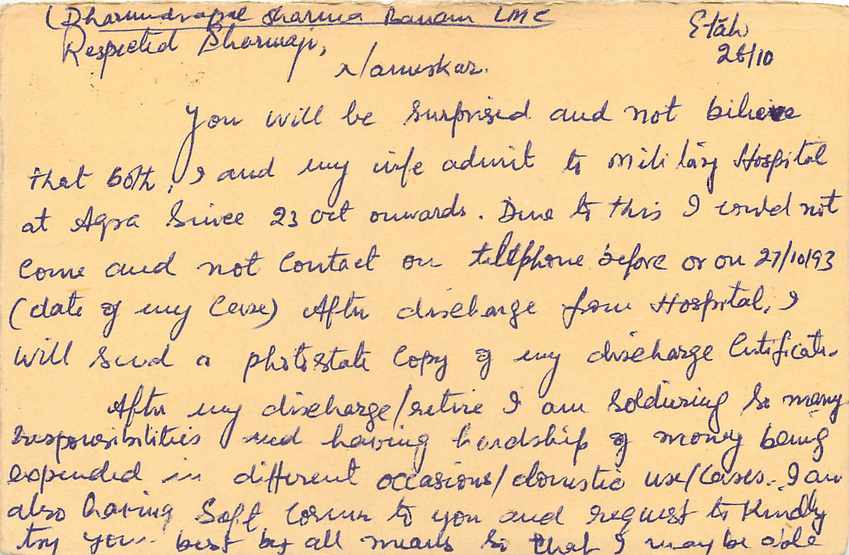 (Dharmendrapal Sharma Banam LMC
Etah
26/10
Respected Sharmaji,
Namskar.
You will be surprised and not bilieve
that both, I and my wife admit to military Hospital
at Agra Since 23 oct onwards. Due to this I could not
Come and not Contact on teltphone before or on 27/10/93
(date of my Case) After discharge from Hospital, I
will send a photostate Copy of my discharge Certificate.
After my discharge/retire I am Soldiering So many
responsibilities and having hardship of money being
expended in different occasions/domestic use/Cases. I am
also having Soft Corner to you and request to Kindly
try your best by all means So that I may be able